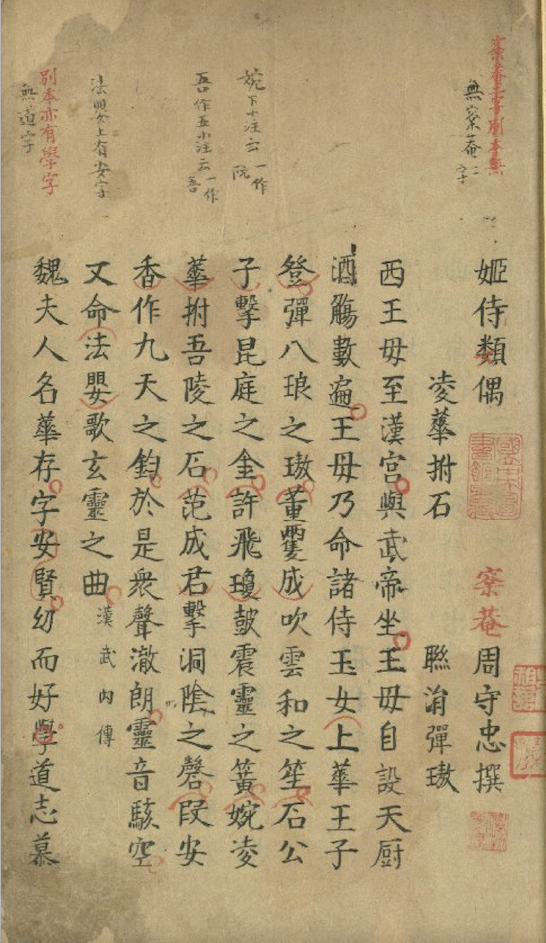 案菴二字別本無
無案菴二字
婉下小注云一作院
吾作五小注云一作吾
法嬰上有安字
別本亦有學字
無道字
姬侍類偶
案菴周守忠撰
凌華拊石
聮涓彈璈
西王母至漢宮與武帝坐王母自設天厨
酒觴數遍王母乃命諸侍玉女上華王子
登彈八琅之璈董雙成吹雲和之笙石公
子擊昆庭之金許飛瓊鼓震靈之簧婉凌
華拊吾陵之石范成君擊洞陰之磬段安
香作九天之鈞於是衆聲澈朗靈音駭空
又命法嬰歌玄靈之曲漢武內傳
魏夫人名華存字安賢幼而好學道志慕